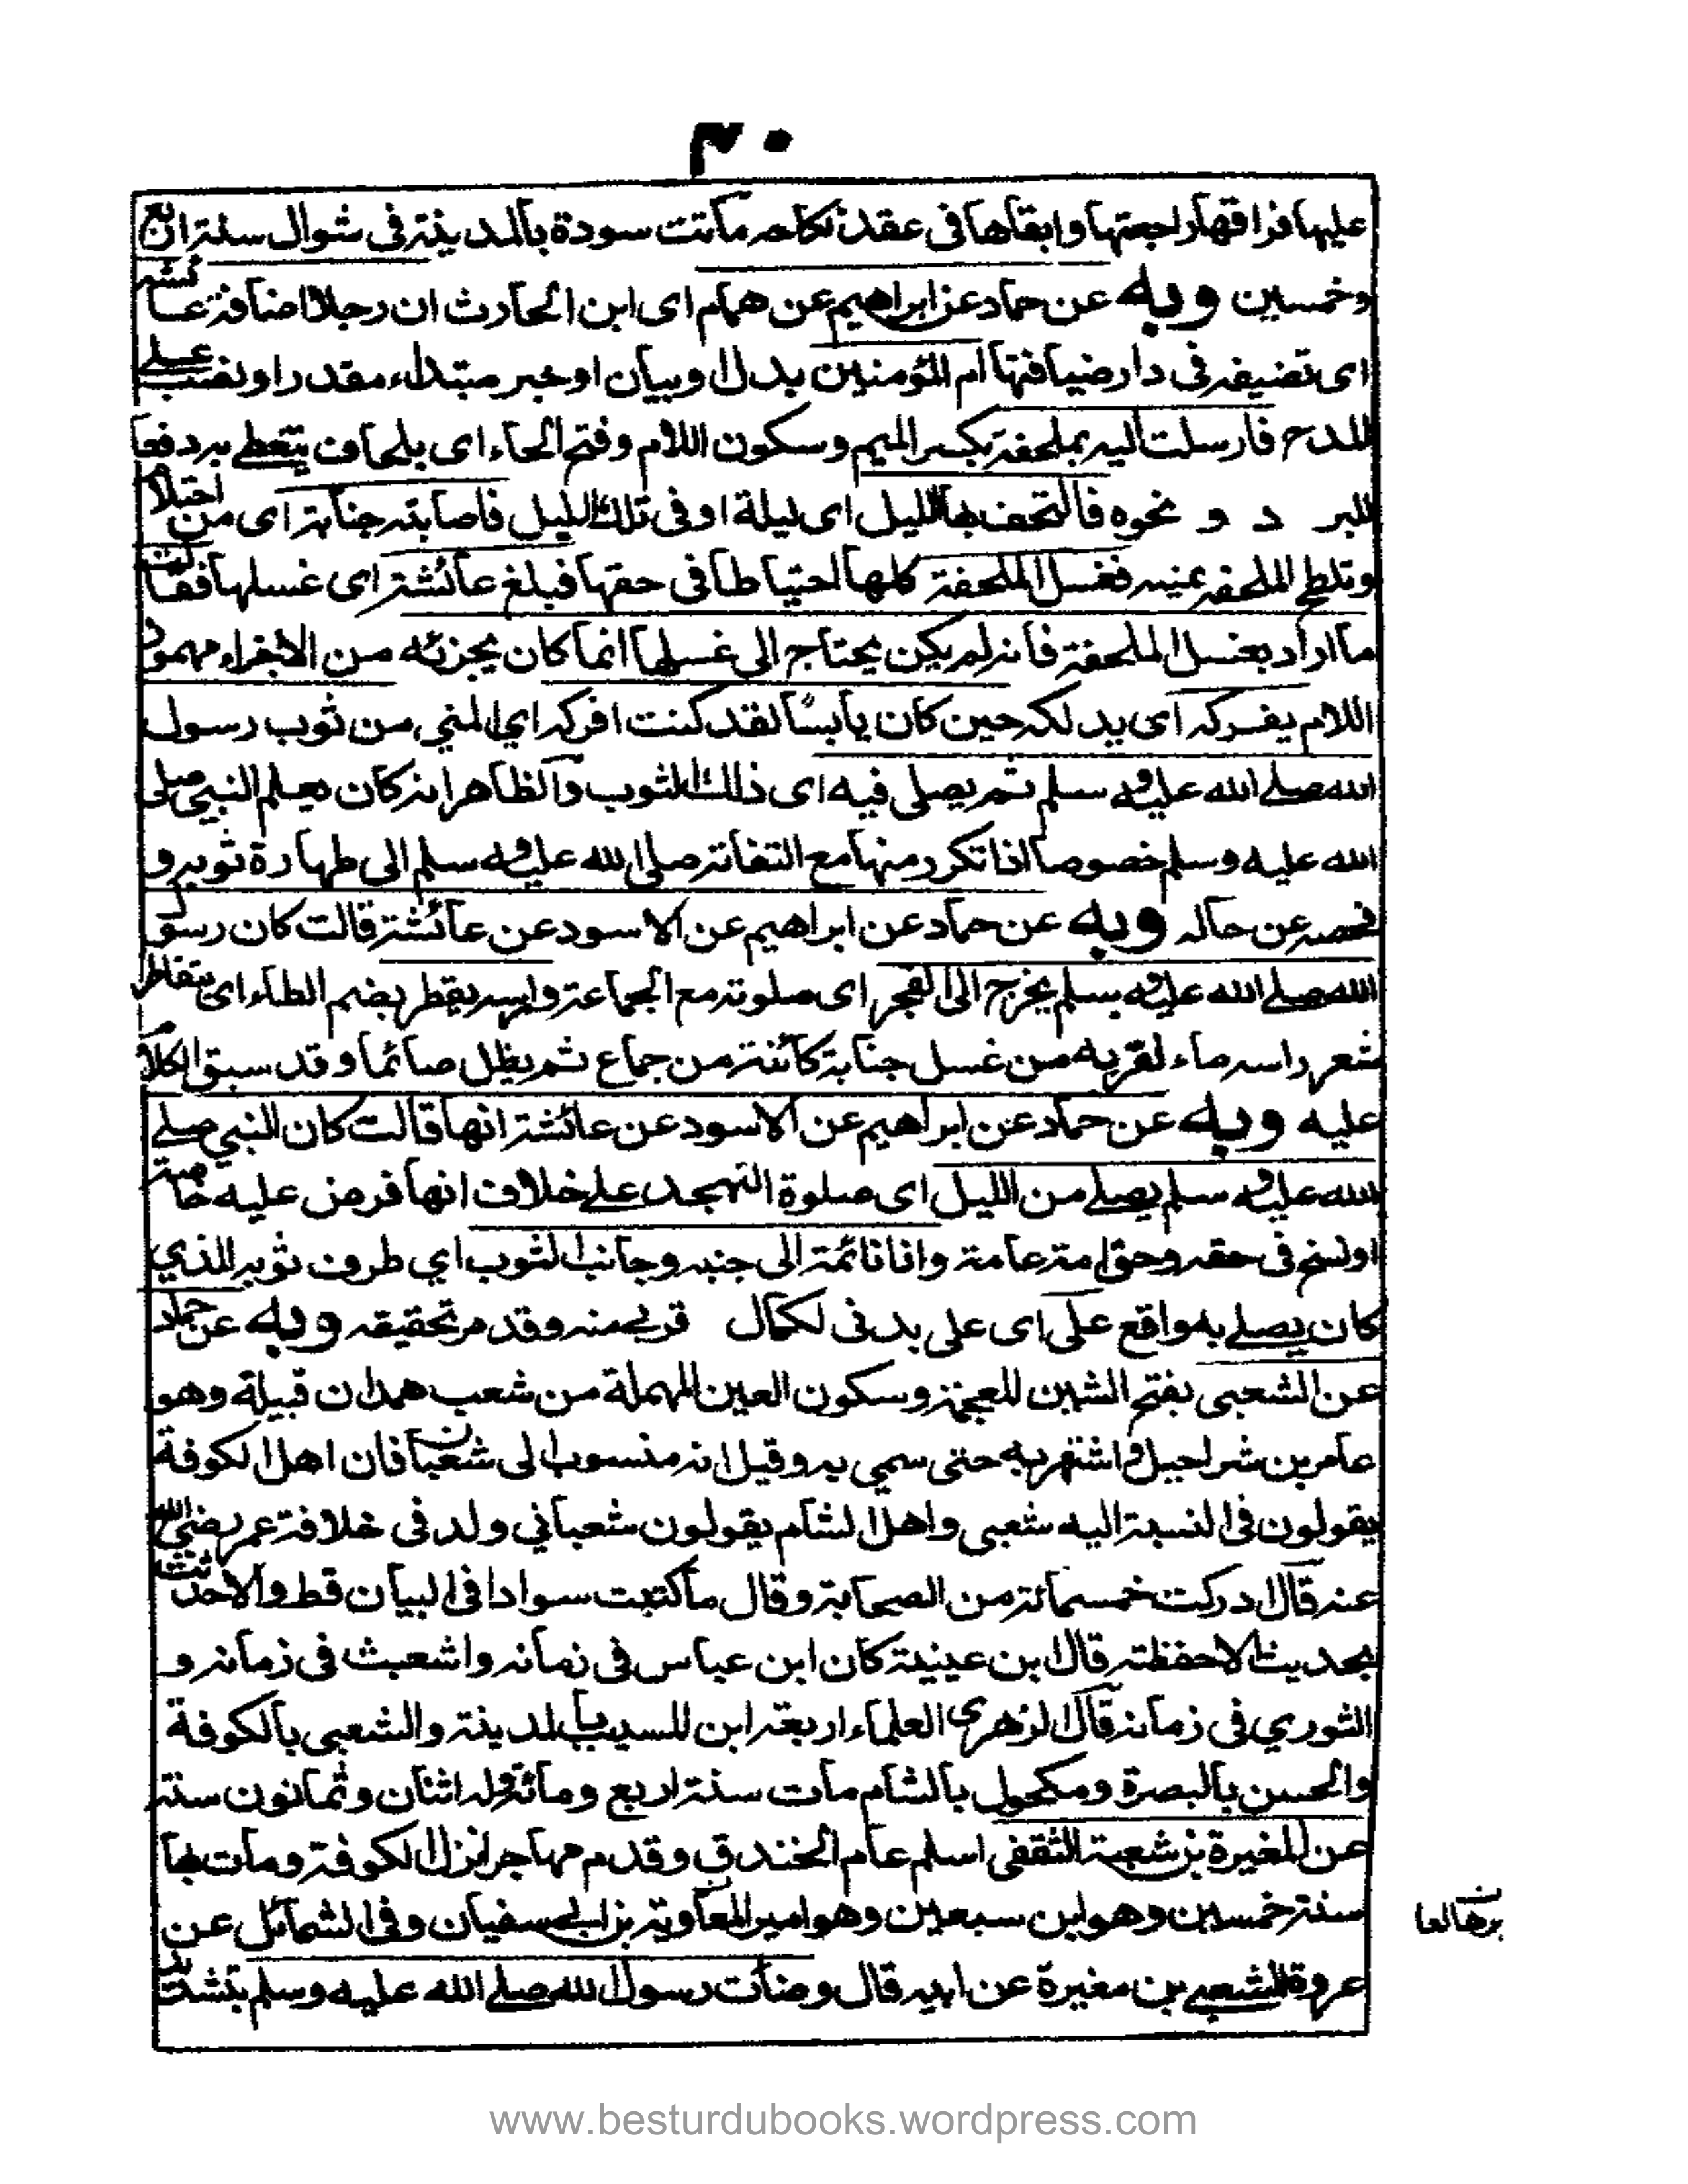 ٣٠
عليها فراقها راجعتها وابقاها فى عقد نكاحه ماتت سودة بالمدينة فى شوال سنة اربع
وخمسين وبه عن حماد عن ابراهيم عن همام اى ابن الحارث ان رجلا اضافته عائشة
اى تضيفه فى دار ضيافتها ام المؤمنين بدل او بيان او خبر مبتداء مقدر او نصب على
المدح فارسلت اليه بملحفة بكسر الميم وسكون اللام وفتح الحاء اى بلحاف يتغطى به دفعا
للبرد و نحوه فالتحف بها الليل اى ليلة او فى تلك الليل فاصابته جنابة اى من احتلام
وتلطخ الملحفة بمنيه فغسل الملحفة كلها احتياطا فى حقها فبلغ عائشة اى غسلها فقالت
ما اراد بغسل الملحفة فانه لم يكن يحتاج الى غسلها انما كان يجزئه من الاجزاء مهموز
اللام يفركه اى يدلكه حين كان يابسا لقد كنت افركه اي المني من ثوب رسول
الله صلے الله عليه وسلم ثم يصلى فيه اى ذلك الثوب والظاهر انه كان بعلم النبي صلى
الله عليه وسلم خصوصا اذا تكرر منها مع التفاته صلى الله عليه وسلم الى طهارة ثوبه و
فحصه عن حاله وبه عن حماد عن ابراهيم عن الاسود عن عائشة قالت كان رسول
الله صلے الله عليه وسلم يخرج الى الفجر اى صلوته مع الجماعة وراسه يقطر بضم الطاء اى يتقاطر
شعر راسه ماء لقربه من غسل جنابة كائنة من جماع ثم يظل صائما وقد سبق الكلام
عليه وبه عن حماد عن ابراهيم عن الاسود عن عائشة انها قالت كان النبي صلے
الله عليه وسلم يصلے من الليل اى صلوة التهجد علے خلاف انها فرض عليه خاصة
او نسخ فى حقه وحق امته عامة وانا نائمة الى جنبه وجانب الثوب اي طرف ثوبه الذي
كان يصلے به واقع على اى على بدنى لكمال قربے منه وقد مر تحقيقه وبه عن حماد
عن الشعبى بفتح الشين المعجمة وسكون العين المهملة من شعب همدان قبيلة وهو
عامر بن شراحيل واشتهر به حتى سمي به وقيل انه منسوب الى شعبان فان اهل الكوفة
يقولون فى النسبة اليه شعبى واهل الشام يقولون شعباني ولد فى خلافة عمر رضي الله
عنه قال ادركت خمسمائة من الصحابة وقال ما كتبت سوادا فى البيان قط ولا حدثت
بحديث الا حفظته قال ابن عيينة كان ابن عباس فى زمانه واشعبث فى زمانه و
الثوري فى زمانه قال الزهري العلماء اربعة ابن المسيب بالمدينة والشعبى بالكوفة
والحسن بالبصرة ومكحول بالشام مات سنة اربع ومائة وله اثنان وثمانون سنة
عن المغيرة بن شعبة الثقفى اسلم عام الخندق وقدم مهاجرا نزل الكوفة ومات بها
سنة خمسين وهو ابن سبعين وهو امير المعاوية بن ابے سفيان وفى الشمائل عن
عروة الشعبے بن مغيرة عن ابيه قال وضأت رسول الله صلے الله عليه وسلم بتشديد
www.besturdubooks.wordpress.com